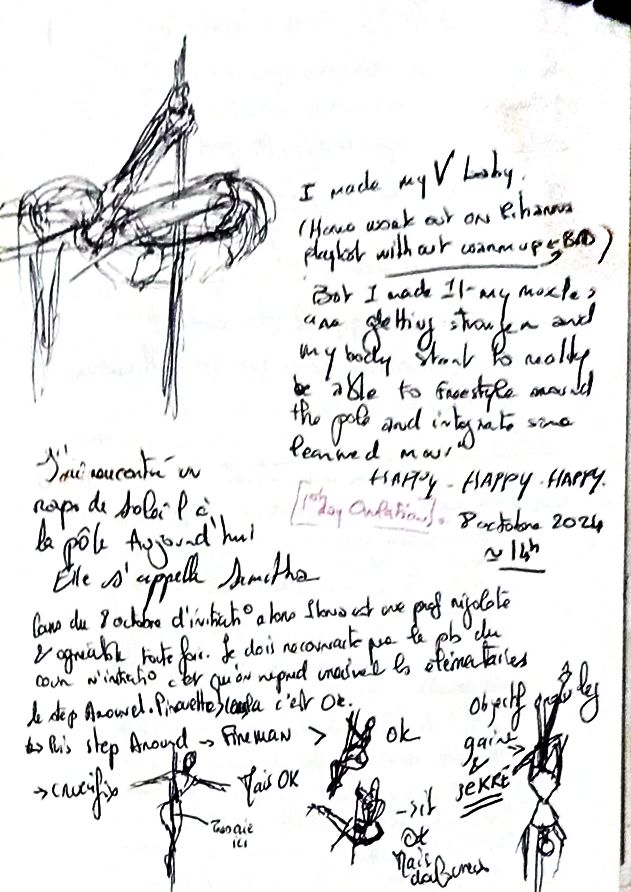 I made my V baby.
(Home work out on Rihanna
playlist without warm up = BAD)
But I made It - my muscles
are getting stronger and
my body start to really
be able to freestyle around
the pole and integrate some
learned mov'
HAPPY - HAPPY - HAPPY.
[1st day Ovulation].
8 octobre 2024
≈ 14h
J'ai rencontré un
rayon de soleil à
la pôle Aujourd'hui
Elle s'appelle
Cours du 8 octobre d'initiat° est une prof rigolote
& agréable toute fois. Je dois reconnaitre que le pb du
cours d'initiat° c'est qu'on reprend les élémentaires
le step Around. Pirouette c'est OK.
Puis step Around → Fireman > OK
→ crucifix
Mais OK
ici
- sit
OK
Mais
Objectif leg
gaine
&
SEKRÉ